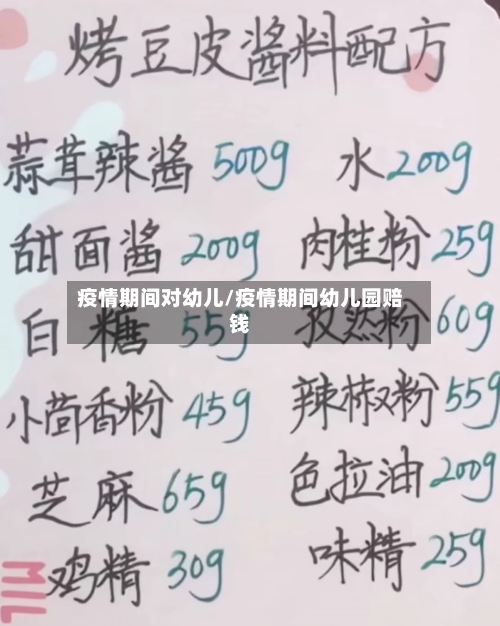 烤豆皮酱料配方
蒜茸辣酱 500g 水 200g
甜面酱 200g 肉桂粉 25g
疫情期间对幼儿/疫情期间幼儿园赔
钱
白糖 55g 孜然粉 60g
小茴香粉 45g 辣椒粉 55g
芝麻 65g 色拉油 200g
鸡精 30g 味精 25g
MIL